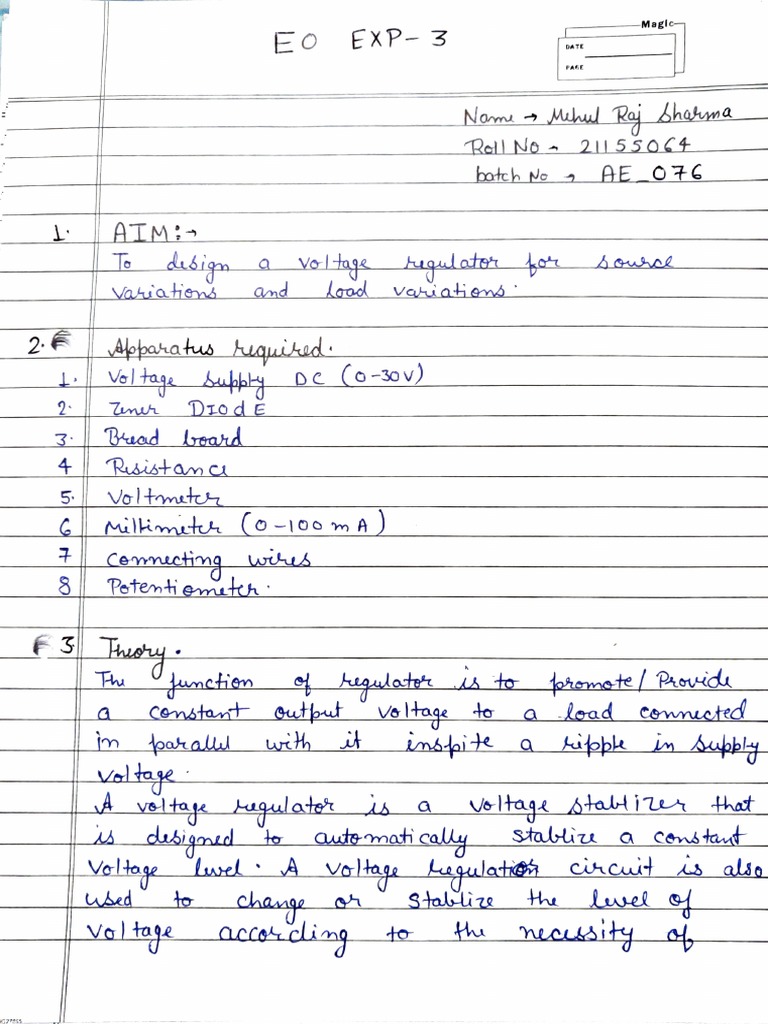 EO EXP-3
Magic
DATE
PAGE
Name → Mehul Raj Sharma
Roll No - 21155064
batch No → AE_076
1. AIM:→
To design a voltage regulator for source
variations and load variations.
2. Apparatus required.
1. Voltage supply DC (0-30V)
2. Zener DIodE
3. Bread board
4 Resistance
5. Voltmeter
6 Millimeter (0-100 mA)
7 Connecting wires
8 Potentiometer.
3 Theory.
The function of regulator is to promote/Provide
a constant output voltage to a load connected
in parallel with it inspite a ripple in supply
voltage.
A voltage regulator is a voltage stablizer that
is designed to automatically stablize a constant
voltage level. A voltage regulator circuit is also
used to change or stablize the level of
voltage according to the necessity of